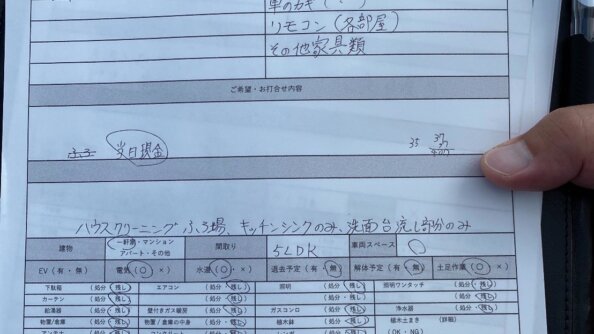 車のカギ
リモコン(各部屋)
その他家具類
ご希望・お打合せ内容
当日現金 35 37
ハウスクリーニング ふろ場、キッチンシンクのみ、洗面台流し部分のみ
建物 一軒家・マンション アパート・その他 間取り 5LDK 車両スペース ○
EV(有・無) 電気(○・×) 水道(○・×) 退去予定(有・無) 解体予定(有・無) 土足作業(○・×)
下駄箱 (処分・残し) エアコン (処分・残し) 照明 (処分・残し) 照明ワンタッチ (処分・残し)
カーテン (処分・残し) (処分・残し) (処分・残し) (処分・残し)
給湯器 (処分・残し) 壁付きガス暖房 (処分・残し) ガスコンロ (処分・残し) 浄水器 (処分・残し)
物置/倉庫 (処分・残し) 物置/倉庫の中身 (処分・残し) 植木鉢 (処分・残し) 植木土まき (詳細)
(OK・NG)